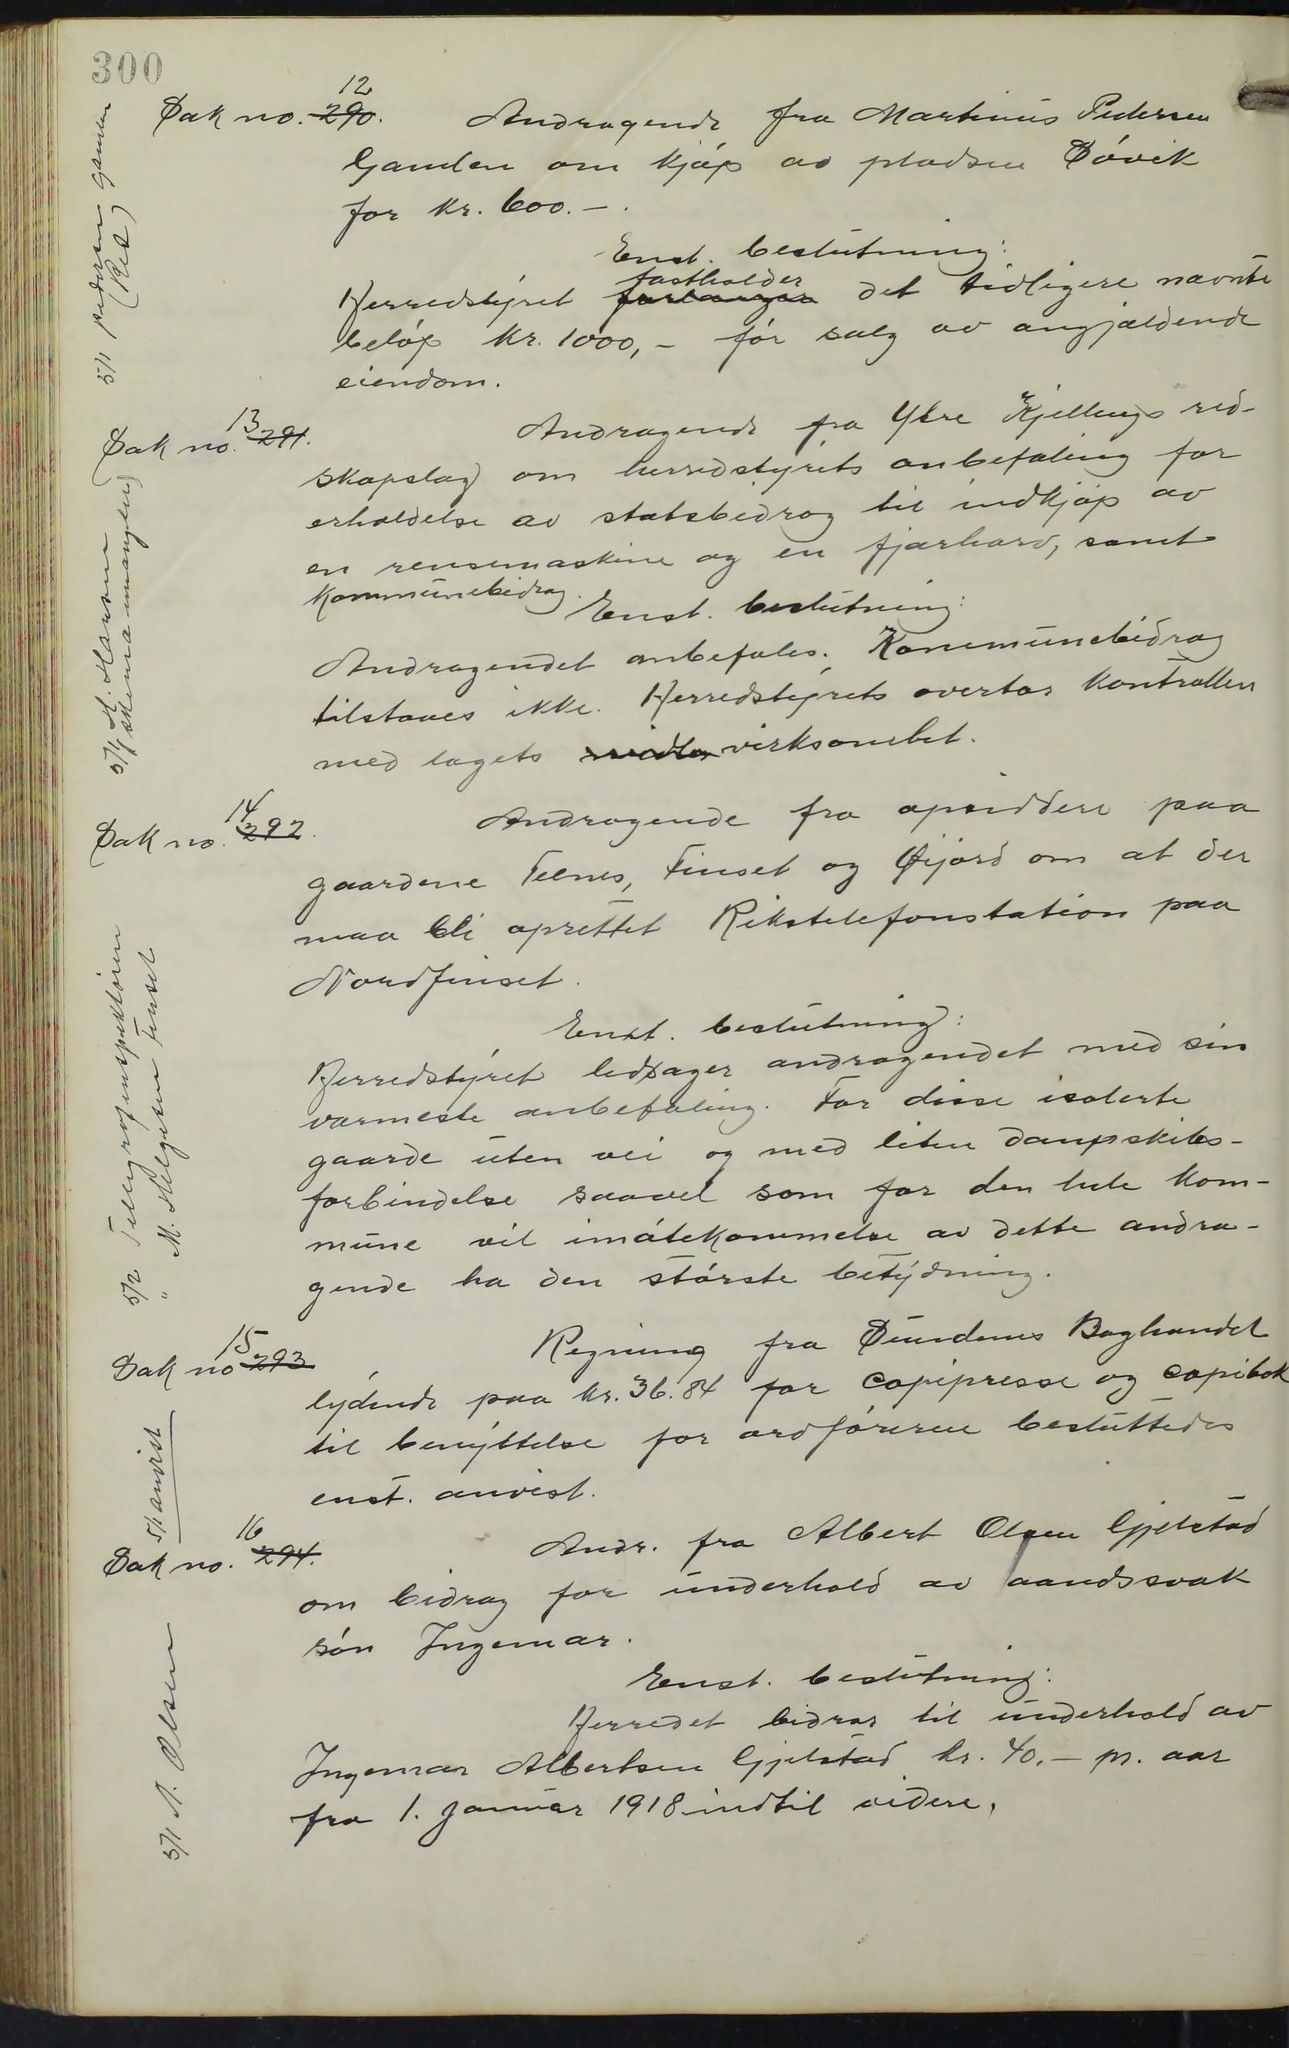 300
12
Sak no. 290. Andragende fra Martinus Pedersen
Gamlen om kjøp av pladsen Søvik
for kr. 600.-.
Enst. beslutning:
fastholder
Herredstyret forlanger det tidligere nævnte
beløp kr. 1000,- for salg av angjældende
eiendom.
5/1 Pedersen Gamlen
(Red)
13
Sak no. 291. Andragende fra Ytre Kjellings red-
skapslag om herredstyrets anbefaling for
erholdelse av statsbidrag til indkjøp av
en rensemaskine og en fjærharv, samt
kommunebidrag.
Enst. beslutning:
Andragendet anbefales. Kommunebidrag
tilstaaes ikke. Herredstyrets overtar kontrollen
med lagets virksomhet.
5/1 A. Hansen
skema mangler)
14
Sak no. 292. Andragende fra opsiddere paa
gaardene Telnes, Finset og Øijord om at der
maa bli oprettet Rikstelefonstation paa
Nordfinset.
Enst. beslutning:
Herredstyret ledsager andragendet med sin
varmeste anbefaling. For disse isolerte
gaarde uten vei og med liten dampskibs-
forbindelse saavel som for den hele kom-
mune vil imøtekommelse av dette andra-
gende ha den største betydning.
5/2 Telegrafinspektøren
" M. Helgesen Finset
15
Sak no 293 Regning fra Sundenes Boghandel
lydende paa kr. 36.84 for copipresse og copibok
til benyttelse for ordføreren besluttedes
enst. anvist.
5/1 anvist
16
Sak no. 294. Andr. fra Albert Olsen Gjelstad
om bidrag for underhold av aandssvak
søn Ingemar.
Enst. beslutning:
Herredet bidrar til underhold av
Ingemar Albertsen Gjelstad kr. 40.- pr. aar
fra 1. januar 1918 indtil videre.
5/1 A. Olsen